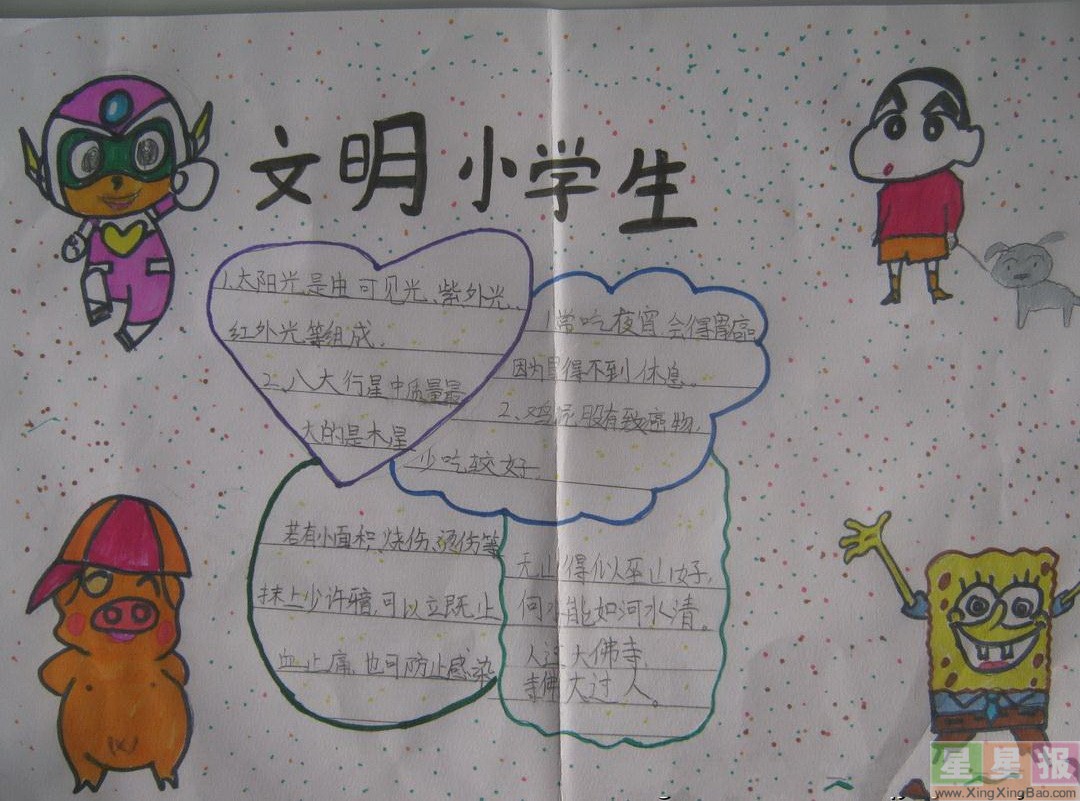 文明小学生
1.太阳光是由可见光、紫外光、
红外光等组成.
2、八大行星中质量最
大的是木星
1常吃夜宵会得胃癌
因为胃得不到休息。
2、鸡 有致癌物,
少吃较好.
若有小面积烧伤、烫伤等
抹上少许 可以立既止
血止痛,也可防止感染
无山得似巫山好,
何水能如河水清。
人过大佛寺,
寺佛大过人。
星星报
www.XingXingBao.com